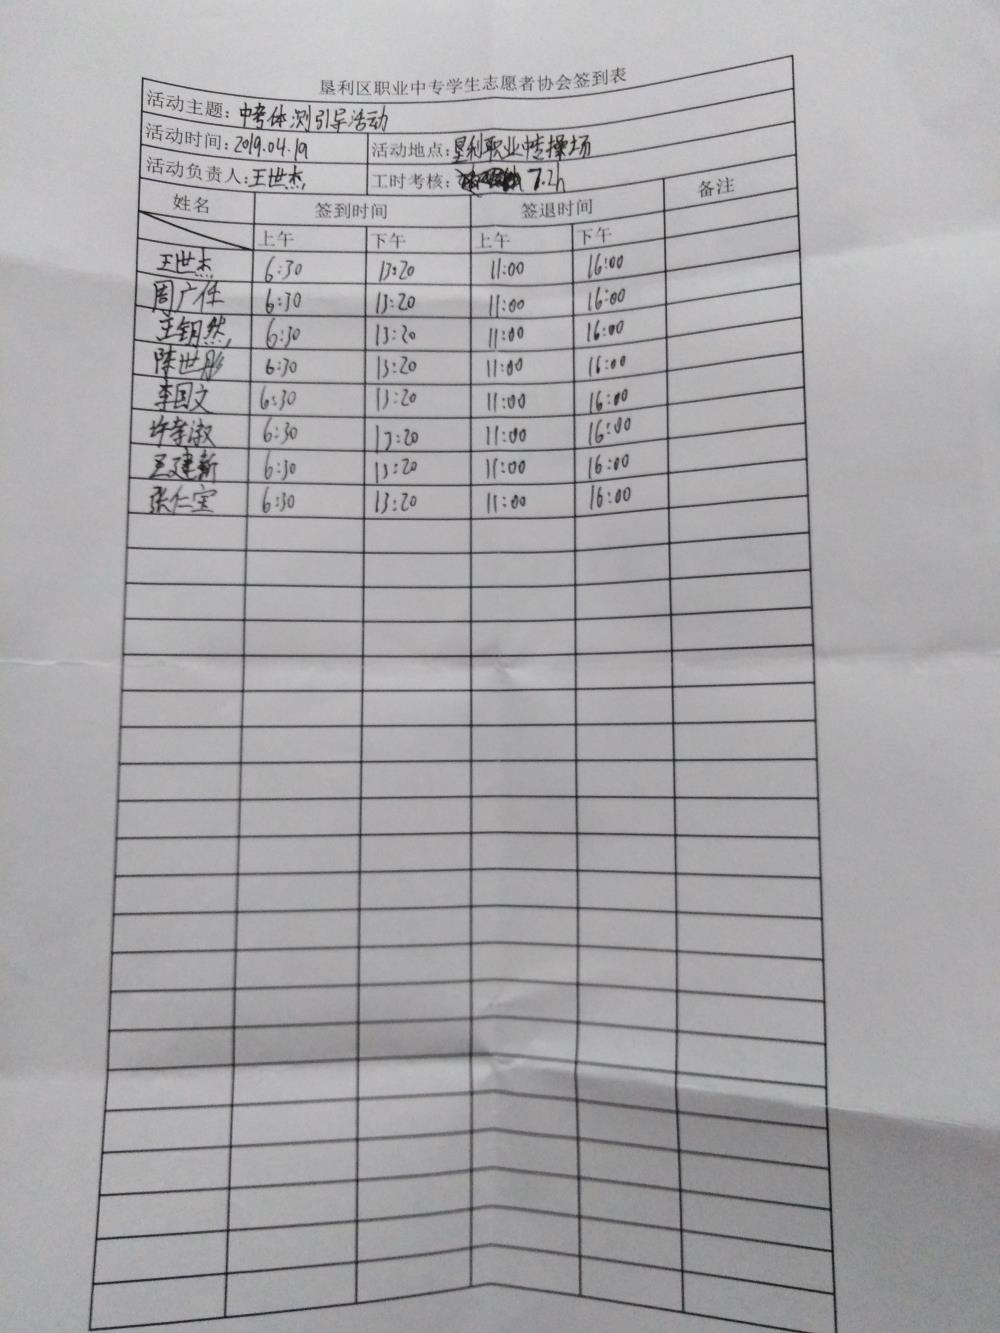 垦利区职业中专学生志愿者协会签到表
活动主题：中考体测引导活动
活动时间：2019.04.19 活动地点：垦利职业中专操场
活动负责人：王世杰 工时考核： 7.2h
姓名 签到时间 签退时间 备注
上午 下午 上午 下午
王世杰 6:30 13:20 11:00 16:00
周广任 6:30 13:20 11:00 16:00
王钥然 6:30 13:20 11:00 16:00
陈世彤 6:30 13:20 11:00 16:00
李国文 6:30 13:20 11:00 16:00
许淑 6:30 13:20 11:00 16:00
王建新 6:30 13:20 11:00 16:00
张仁宝 6:30 13:20 11:00 16:00